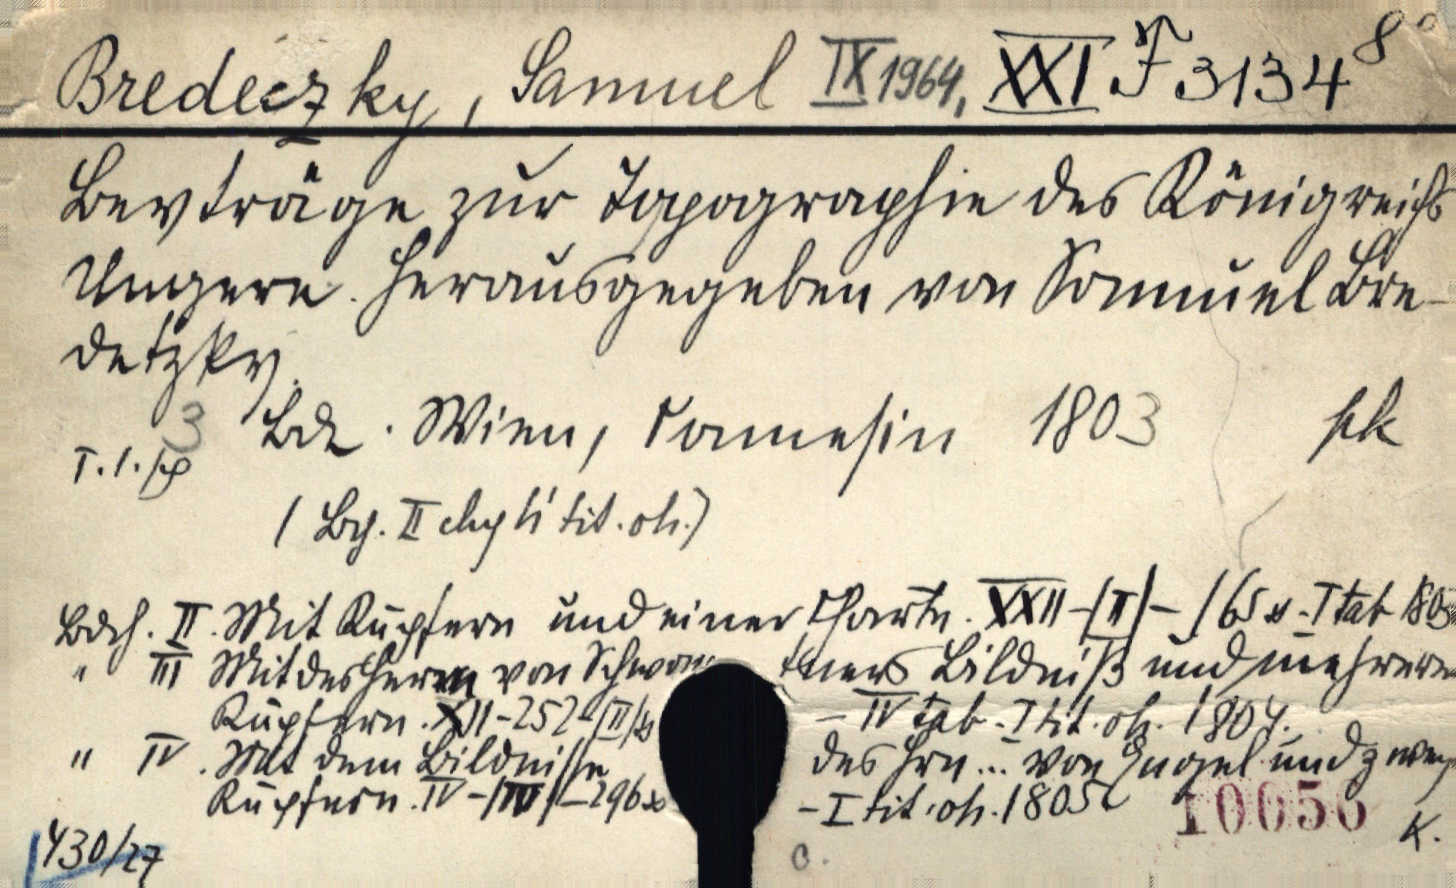 Bredeczky, Samuel IX 1964, XXI F 3134 8°
Beyträge zur Topographie des Königreichs
Ungern. Herausgegeben von Samuel Bre-
detzky.
3 Bde. Wien, Camesina 1803
(Bch. II tit. oh.)
Bdch. II. Mit Kupfern und einer Charte. XXII-(II)- 165 s -I tab 1803
" III Mit des Herrn von Bildniß und mehreren
Kupfern. XII-252-(II) s -IV tab. I tit. oh. 1804.
" IV. Mit dem Bildnisse des Hrn... von Engel und zwey
Kupfern. IV-(IV)-296 s -I tit. oh. 1805
10056 K.
430/27